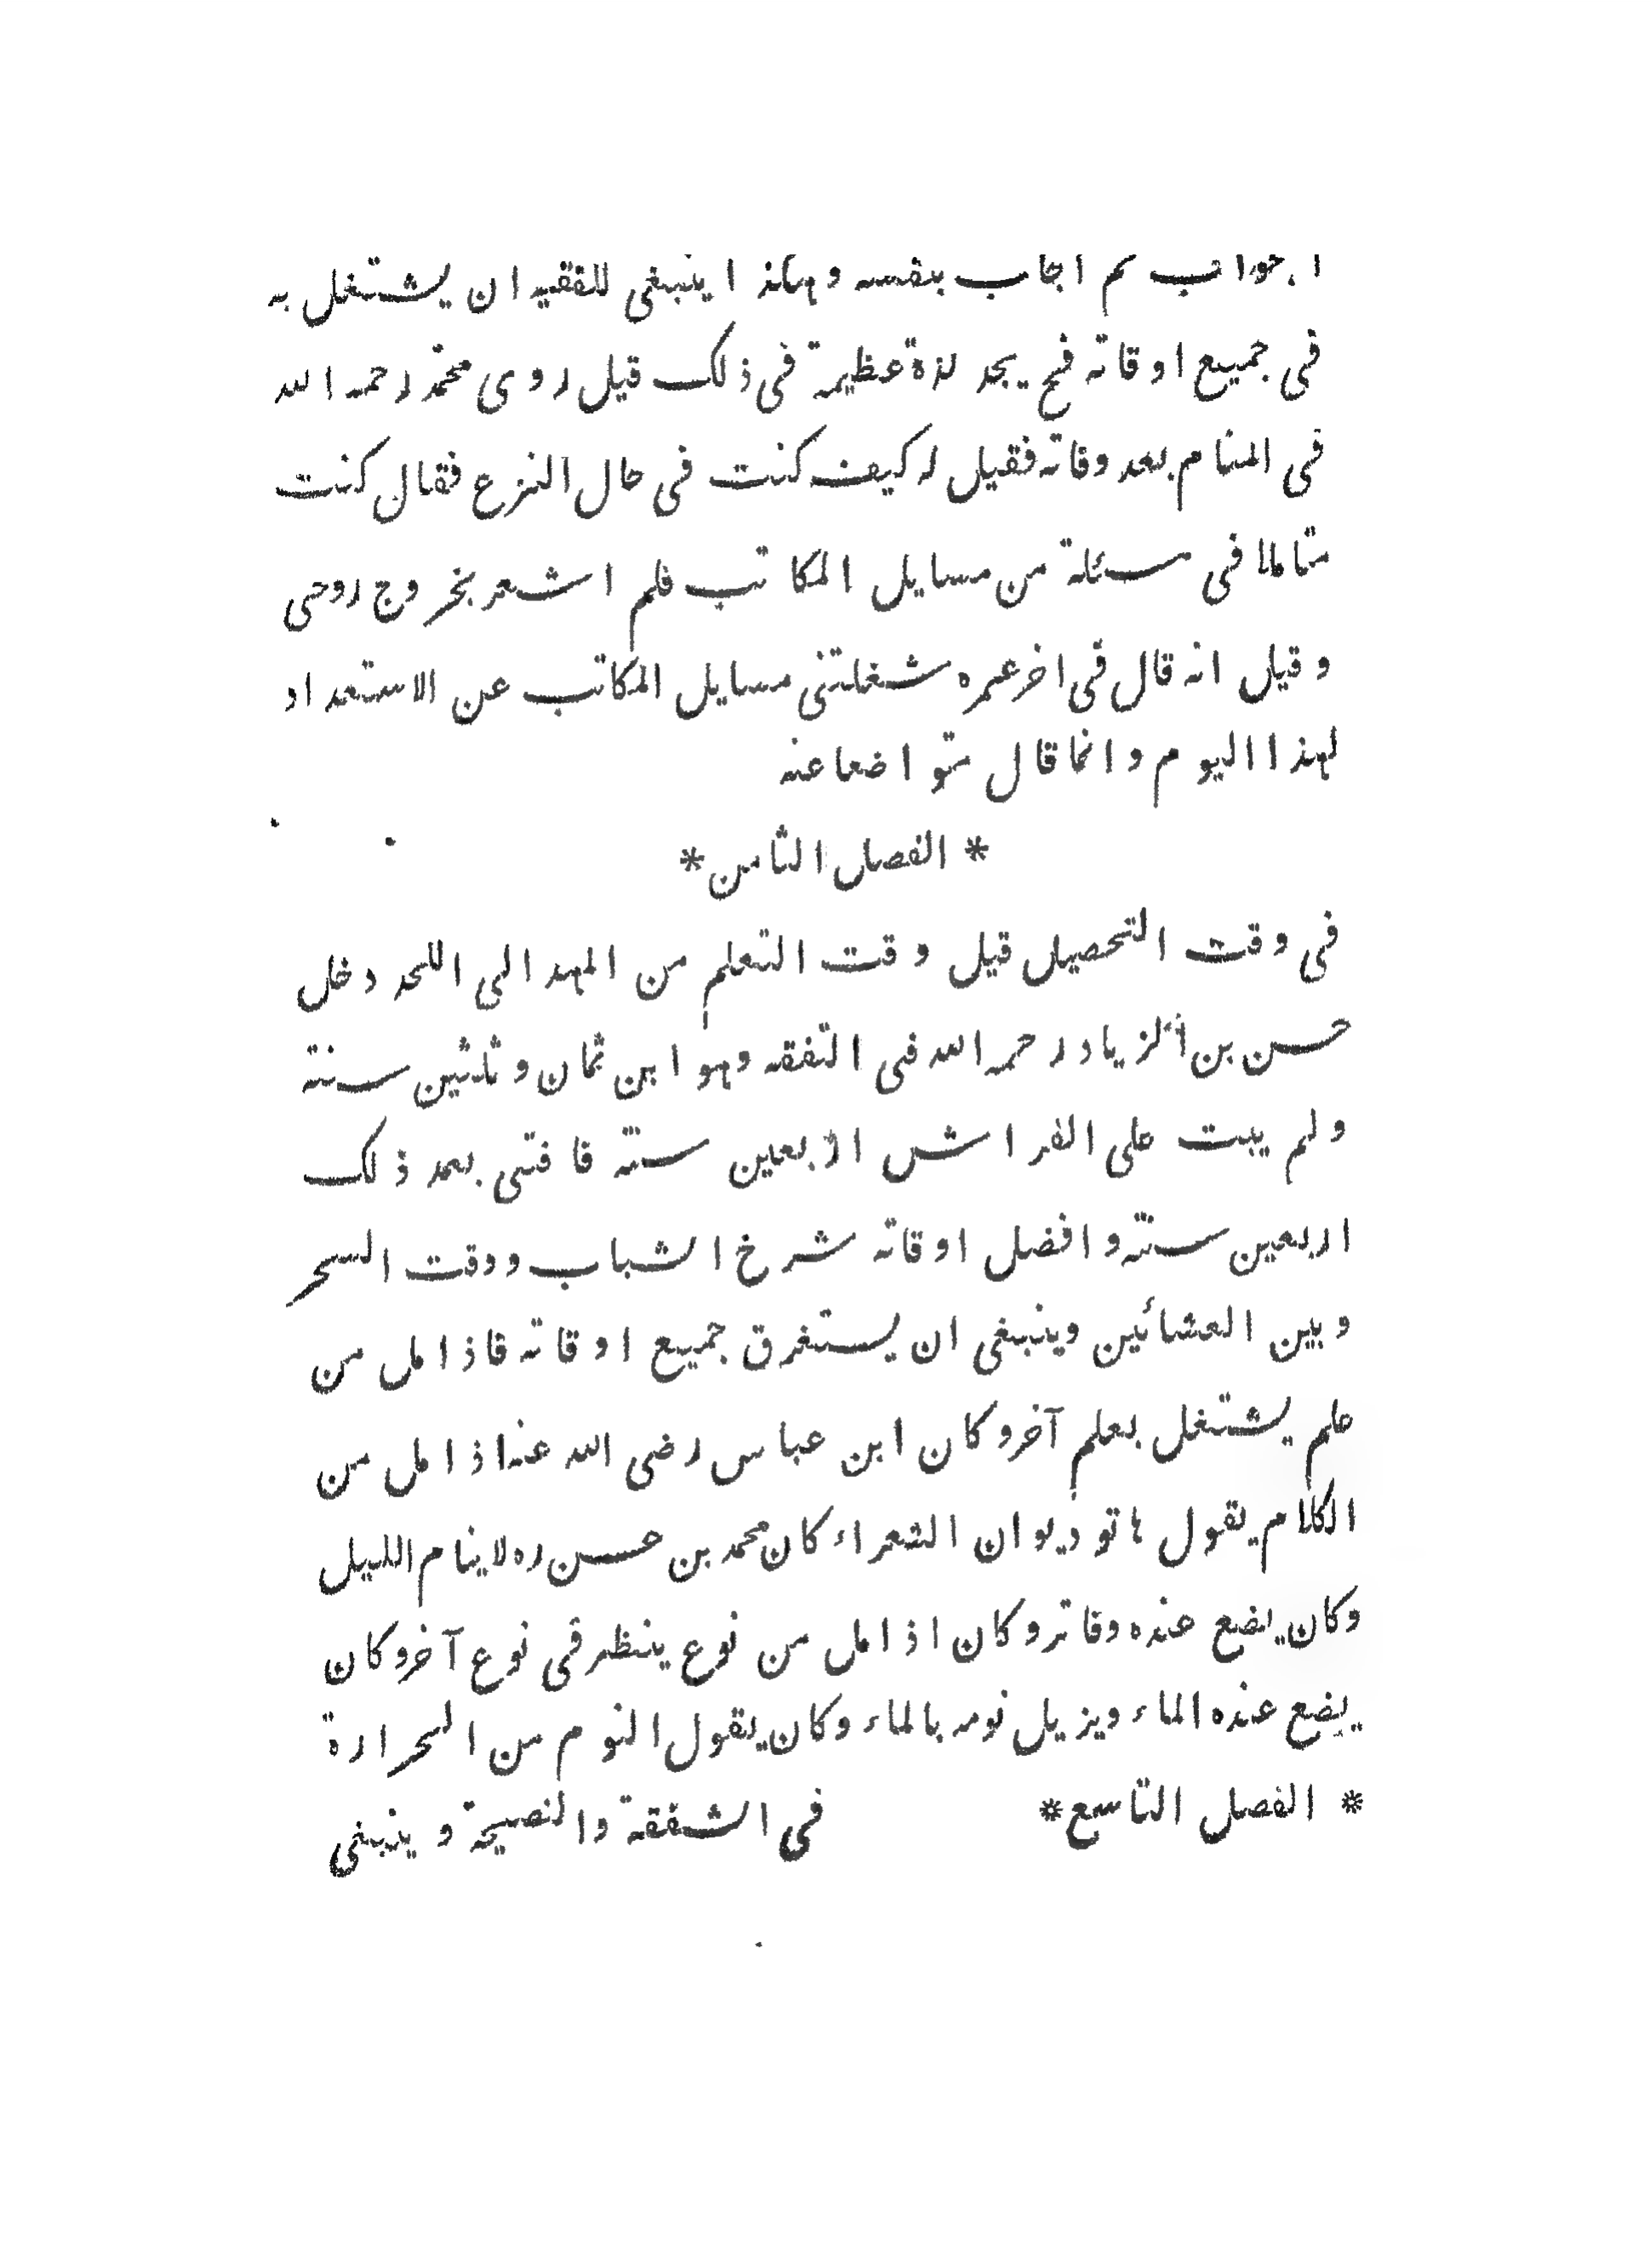 الجواب ثم اجاب بنفسه وهكذا ينبغى للفقيه ان يشتغل به
فى جميع اوقاته فح يجد لذة عظيمة فى ذلك قيل روى محمد رحمه الله
فى المنام بعد وفاته فقيل له كيف كنت فى حال النزع فقال كنت
متاملا فى مسئلة من مسايل المكاتب فلم اشعر بخروج روحى
وقيل انه قال فى اخر عمره شغلتنى مسايل المكاتب عن الاستعداد
لهذا اليوم وانما قال تواضعا عنه
* الفصل الثامن *
فى وقت التحصيل قيل وقت التعلم من المهد الى اللحد دخل
حسن بن الزياد رحمه الله فى التفقه وهو ابن ثمان وثلثين سنة
ولم يبت على الفراش اربعين سنة فافتى بعد ذلك
اربعين سنة وافضل اوقاته شرخ الشباب ووقت السحر
وبين العشائين وينبغى ان يستغرق جميع اوقاته فاذا مل من
علم يشتغل بعلم آخر وكان ابن عباس رضى الله عنه اذا مل من
الكلام يقول هاتو ديوان الشعراء كان محمد بن حسن ره لاينام الليل
وكان يضع عنده دفاتر وكان اذا مل من نوع ينظر فى نوع آخر وكان
يضع عنده الماء ويزيل نومه بالماء وكان يقول النوم من الحرارة
* الفصل التاسع * فى الشفقة والنصيحة وينبغى